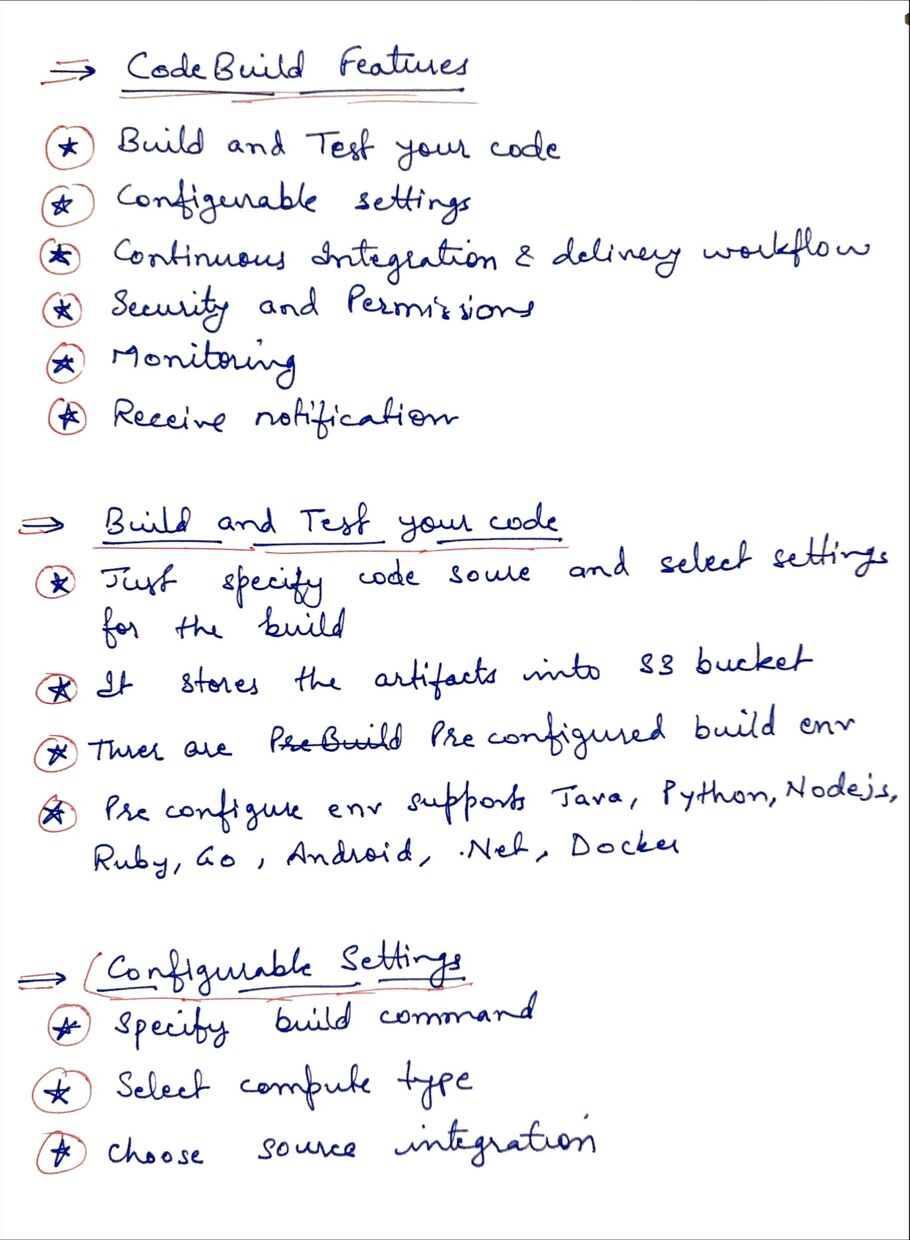 ⇒ CodeBuild Features
★ Build and Test your code
★ Configurable settings
★ Continuous Integration & delivery workflow
★ Security and Permissions
★ Monitoring
★ Receive notification
⇒ Build and Test your code
★ Just specify code source and select settings
for the build
★ It stores the artifacts into S3 bucket
★ There are PreBuild Pre configured build env
★ Pre configure env supports Java, Python, Nodejs,
Ruby, Go, Android, .Net, Docker
⇒ Configurable Settings
★ Specify build command
★ Select compute type
★ Choose source integration